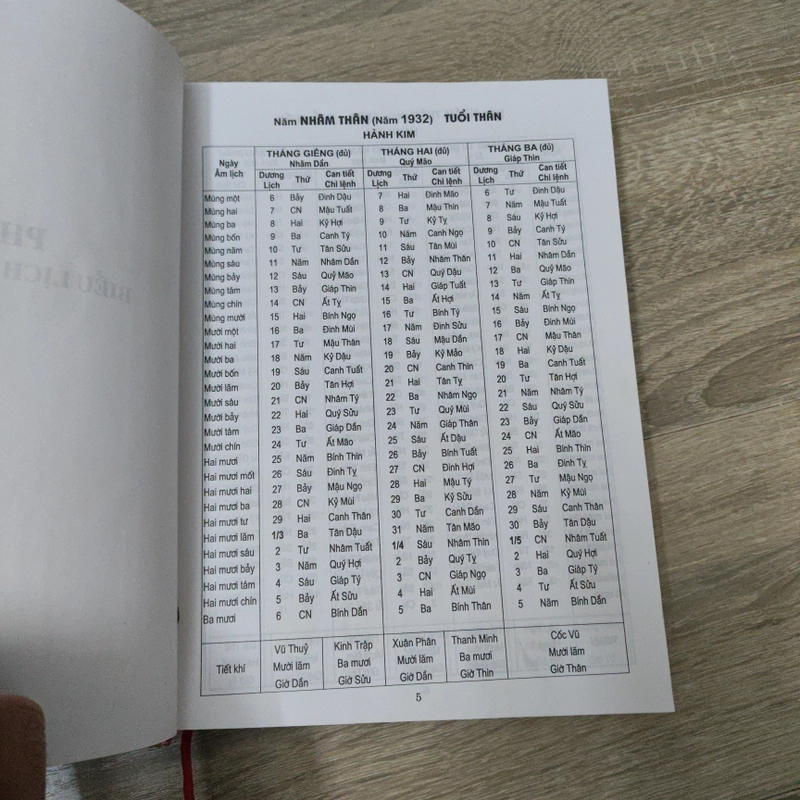 PH
BIỂU LỊCH
Năm NHÂM THÂN (Năm 1932) TUỔI THÂN
HÀNH KIM
Ngày Âm lịch THÁNG GIÊNG (đủ) Nhâm Dần THÁNG HAI (đủ) Quý Mão THÁNG BA (đủ) Giáp Thìn
Dương Lịch Thứ Can tiết Chi lệnh Dương Lịch Thứ Can tiết Chi lệnh Dương Lịch Thứ Can tiết Chi lệnh
Mùng một 6 Bảy Đinh Dậu 7 Hai Đinh Mão 6 Tư Đinh Dậu
Mùng hai 7 CN Mậu Tuất 8 Ba Mậu Thìn 7 Năm Mậu Tuất
Mùng ba 8 Hai Kỷ Hợi 9 Tư Kỷ Tỵ 8 Sáu Kỷ Hợi
Mùng bốn 9 Ba Canh Tý 10 Năm Canh Ngọ 9 Bảy Canh Tý
Mùng năm 10 Tư Tân Sửu 11 Sáu Tân Mùi 10 CN Tân Sửu
Mùng sáu 11 Năm Nhâm Dần 12 Bảy Nhâm Thân 11 Hai Nhâm Dần
Mùng bảy 12 Sáu Quý Mão 13 CN Quý Dậu 12 Ba Quý Mão
Mùng tám 13 Bảy Giáp Thìn 14 Hai Giáp Tuất 13 Tư Giáp Thìn
Mùng chín 14 CN Ất Tỵ 15 Ba Ất Hợi 14 Năm Ất Tỵ
Mùng mười 15 Hai Bính Ngọ 16 Tư Bính Tý 15 Sáu Bính Ngọ
Mười một 16 Ba Đinh Mùi 17 Năm Đinh Sửu 16 Bảy Đinh Mùi
Mười hai 17 Tư Mậu Thân 18 Sáu Mậu Dần 17 CN Mậu Thân
Mười ba 18 Năm Kỷ Dậu 19 Bảy Kỷ Mão 18 Hai Kỷ Dậu
Mười bốn 19 Sáu Canh Tuất 20 CN Canh Thìn 19 Ba Canh Tuất
Mười lăm 20 Bảy Tân Hợi 21 Hai Tân Tỵ 20 Tư Tân Hợi
Mười sáu 21 CN Nhâm Tý 22 Ba Nhâm Ngọ 21 Năm Nhâm Tý
Mười bảy 22 Hai Quý Sửu 23 Tư Quý Mùi 22 Sáu Quý Sửu
Mười tám 23 Ba Giáp Dần 24 Năm Giáp Thân 23 Bảy Giáp Dần
Mười chín 24 Tư Ất Mão 25 Sáu Ất Dậu 24 CN Ất Mão
Hai mươi 25 Năm Bính Thìn 26 Bảy Bính Tuất 25 Hai Bính Thìn
Hai mươi mốt 26 Sáu Đinh Tỵ 27 CN Đinh Hợi 26 Ba Đinh Tỵ
Hai mươi hai 27 Bảy Mậu Ngọ 28 Hai Mậu Tý 27 Tư Mậu Ngọ
Hai mươi ba 28 CN Kỷ Mùi 29 Ba Kỷ Sửu 28 Năm Kỷ Mùi
Hai mươi tư 29 Hai Canh Thân 30 Tư Canh Dần 29 Sáu Canh Thân
Hai mươi lăm 1/3 Ba Tân Dậu 31 Năm Tân Mão 30 Bảy Tân Dậu
Hai mươi sáu 2 Tư Nhâm Tuất 1/4 Sáu Nhâm Thìn 1/5 CN Nhâm Tuất
Hai mươi bảy 3 Năm Quý Hợi 2 Bảy Quý Tỵ 2 Hai Quý Hợi
Hai mươi tám 4 Sáu Giáp Tý 3 CN Giáp Ngọ 3 Ba Giáp Tý
Hai mươi chín 5 Bảy Ất Sửu 4 Hai Ất Mùi 4 Tư Ất Sửu
Ba mươi 6 CN Bính Dần 5 Ba Bính Thân 5 Năm Bính Dần
Vũ Thuỷ Kinh Trập Xuân Phân Thanh Minh Cốc Vũ
Tiết khí Mười lăm Ba mươi Mười lăm Ba mươi Mười lăm
Giờ Dần Giờ Sửu Giờ Dần Giờ Thìn Giờ Thân
5